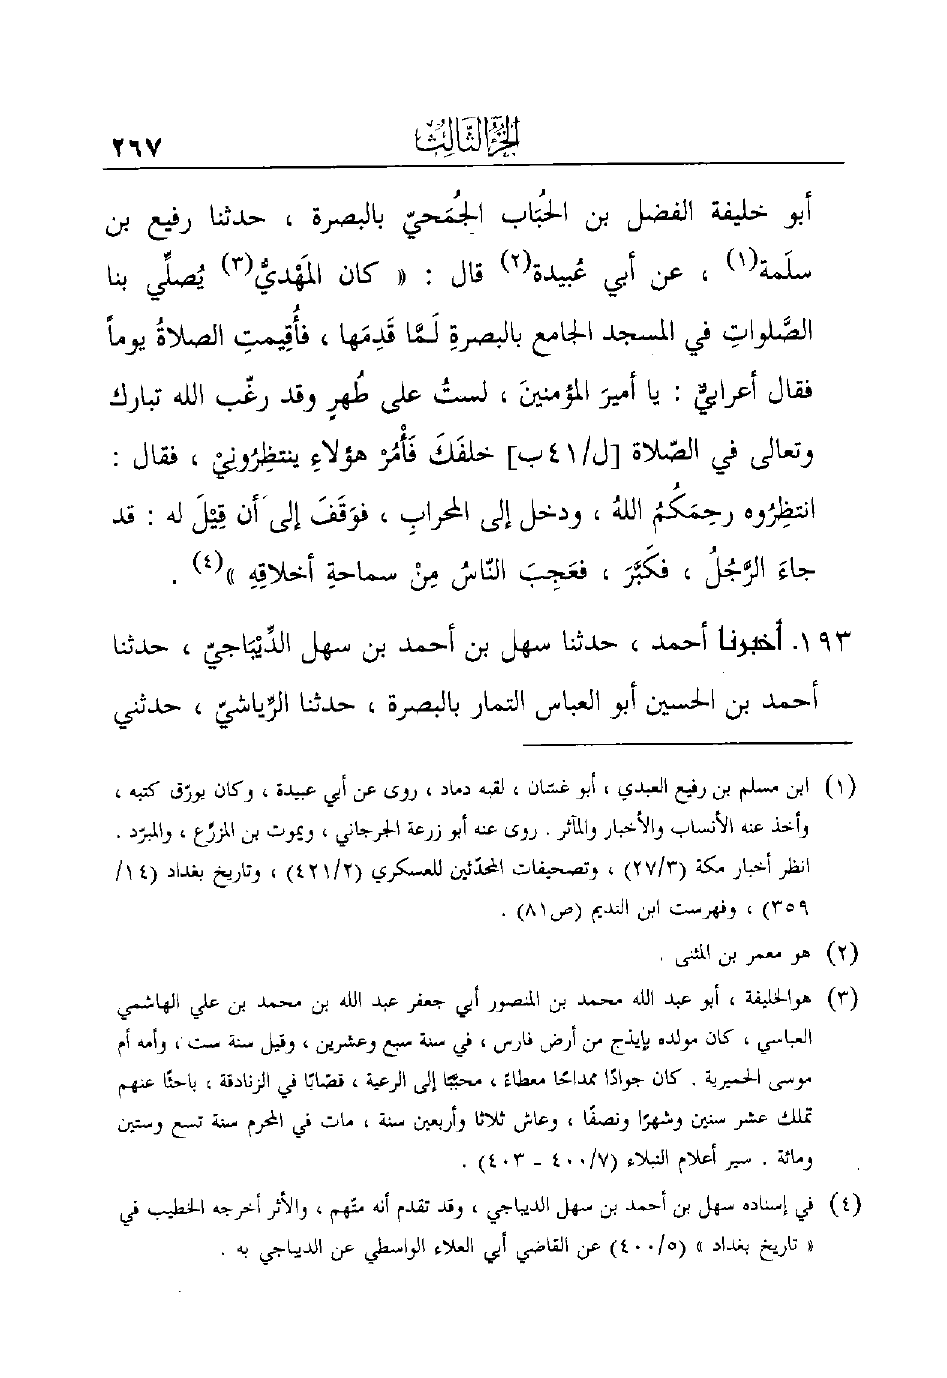 الجزء الثالث
٢٦٧
أبو خليفة الفضل بن الحُبَاب الجُمَحيّ بالبصرة ، حدثنا رفيع بن
سلَمة(١) ، عن أبي عُبيدة(٢) قال : « كان المَهْديُّ(٣) يُصلِّي بنا
الصَّلواتِ في المسجد الجامع بالبصرةِ لَمَّا قَدِمَها ، فأُقيمتِ الصلاةُ يوماً
فقال أعرابيٌّ : يا أميرَ المؤمنينَ ، لستُ على طُهرٍ وقد رغّب الله تبارك
وتعالى في الصّلاة [ل/٤١ب] خلفَكَ فَأْمُرْ هؤلاءِ ينتظِرُونِيْ ، فقال :
انتظِرُوه رحِمَكُمُ اللهُ ، ودخل إلى المحرابِ ، فوَقَفَ إلى أن قِيْلَ له : قد
جاءَ الرَّجُلُ ، فكَبَّرَ ، فعَجِبَ النّاسُ مِنْ سماحةِ أخلاقِهِ »(٤) .
١٩٣. أخبرنا أحمد ، حدثنا سهل بن أحمد بن سهل الدِّيْبَاجيّ ، حدثنا
أحمد بن الحسين أبو العباس التمار بالبصرة ، حدثنا الرِّياشيّ ، حدثني
(١) ابن مسلم بن رفيع العبدي ، أبو غسّان ، لقبه دماد ، روى عن أبي عبيدة ، وكان يورّق كتبه ،
وأخذ عنه الأنساب والأخبار والمآثر . روى عنه أبو زرعة الجرجاني ، ويموت بن المزرّع ، والمبرّد .
انظر أخبار مكة (٢٧/٣) ، وتصحيفات المحدّثين للعسكري (٤٢١/٢) ، وتاريخ بغداد (١٤/
٣٥٩) ، وفهرست ابن النديم (ص٨١) .
(٢) هو معمر بن المثنى .
(٣) هوالخليفة ، أبو عبد الله محمد بن المنصور أبي جعفر عبد الله بن محمد بن علي الهاشمي
العباسي ، كان مولده بإيذج من أرض فارس ، في سنة سبع وعشرين ، وقيل سنة ست ، وأمه أم
موسى الحميرية . كان جوادًا ممداحًا معطاءً ، محبّبًا إلى الرعية ، قصّابًا في الزنادقة ، باحثًا عنهم
تملك عشر سنين وشهرًا ونصفًا ، وعاش ثلاثا وأربعين سنة ، مات في المحرم سنة تسع وستين
ومائة . سير أعلام النبلاء (٤٠٠/٧ - ٤٠٣) .
(٤) في إسناده سهل بن أحمد بن سهل الديباجي ، وقد تقدم أنه متّهم ، والأثر أخرجه الخطيب في
« تاريخ بغداد » (٤٠٠/٥) عن القاضي أبي العلاء الواسطي عن الديباجي به .